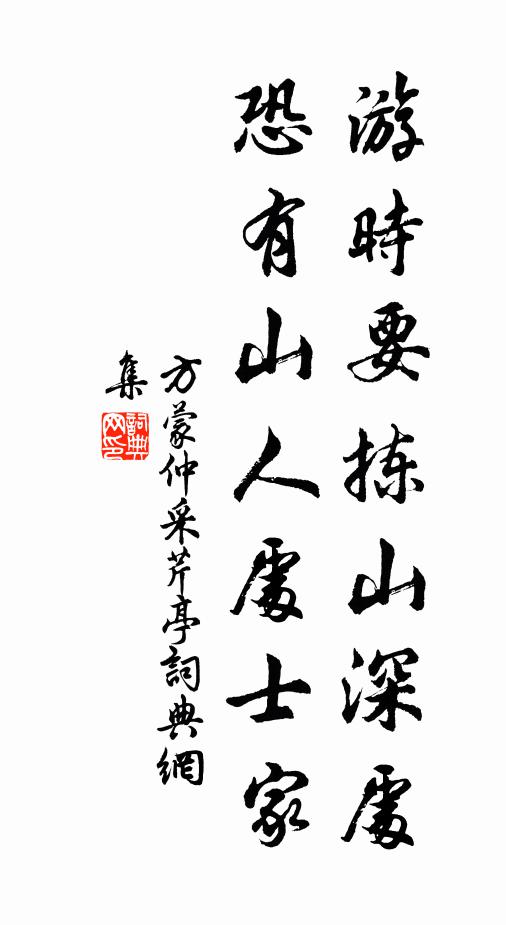 游時要揀山深處
恐有山人處士家
方蒙仲采芹亭詞典網
集
詞典网印